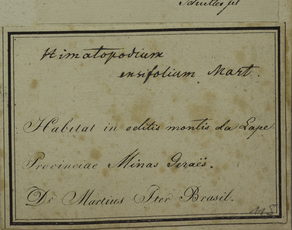 Himatopodium
ensifolium Mart.
Habitat in editis montis da Lapa
Provinciae Minas Geraës.
Dr Martius Iter Brasil.